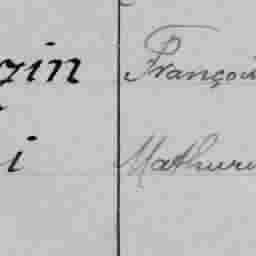 zin François
i Mathurin